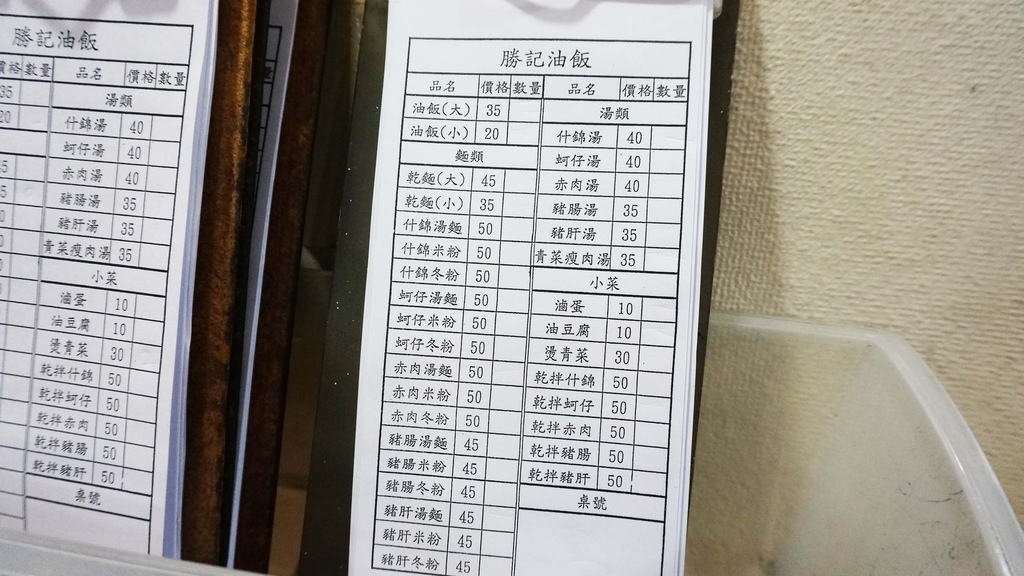 勝記油飯
價格 數量 品名 價格 數量
35 湯類
20 什錦湯 40
蚵仔湯 40
赤肉湯 40
豬腸湯 35
豬肝湯 35
青菜瘦肉湯 35
小菜
滷蛋 10
油豆腐 10
燙青菜 30
乾拌什錦 50
乾拌蚵仔 50
乾拌赤肉 50
乾拌豬腸 50
乾拌豬肝 50
桌號
勝記油飯
品名 價格 數量
油飯(大) 35
油飯(小) 20
麵類
乾麵(大) 45
乾麵(小) 35
什錦湯麵 50
什錦米粉 50
什錦冬粉 50
蚵仔湯麵 50
蚵仔米粉 50
蚵仔冬粉 50
赤肉湯麵 50
赤肉米粉 50
赤肉冬粉 50
豬腸湯麵 45
豬腸米粉 45
豬腸冬粉 45
豬肝湯麵 45
豬肝米粉 45
豬肝冬粉 45
品名 價格 數量
湯類
什錦湯 40
蚵仔湯 40
赤肉湯 40
豬腸湯 35
豬肝湯 35
青菜瘦肉湯 35
小菜
滷蛋 10
油豆腐 10
燙青菜 30
乾拌什錦 50
乾拌蚵仔 50
乾拌赤肉 50
乾拌豬腸 50
乾拌豬肝 50
桌號